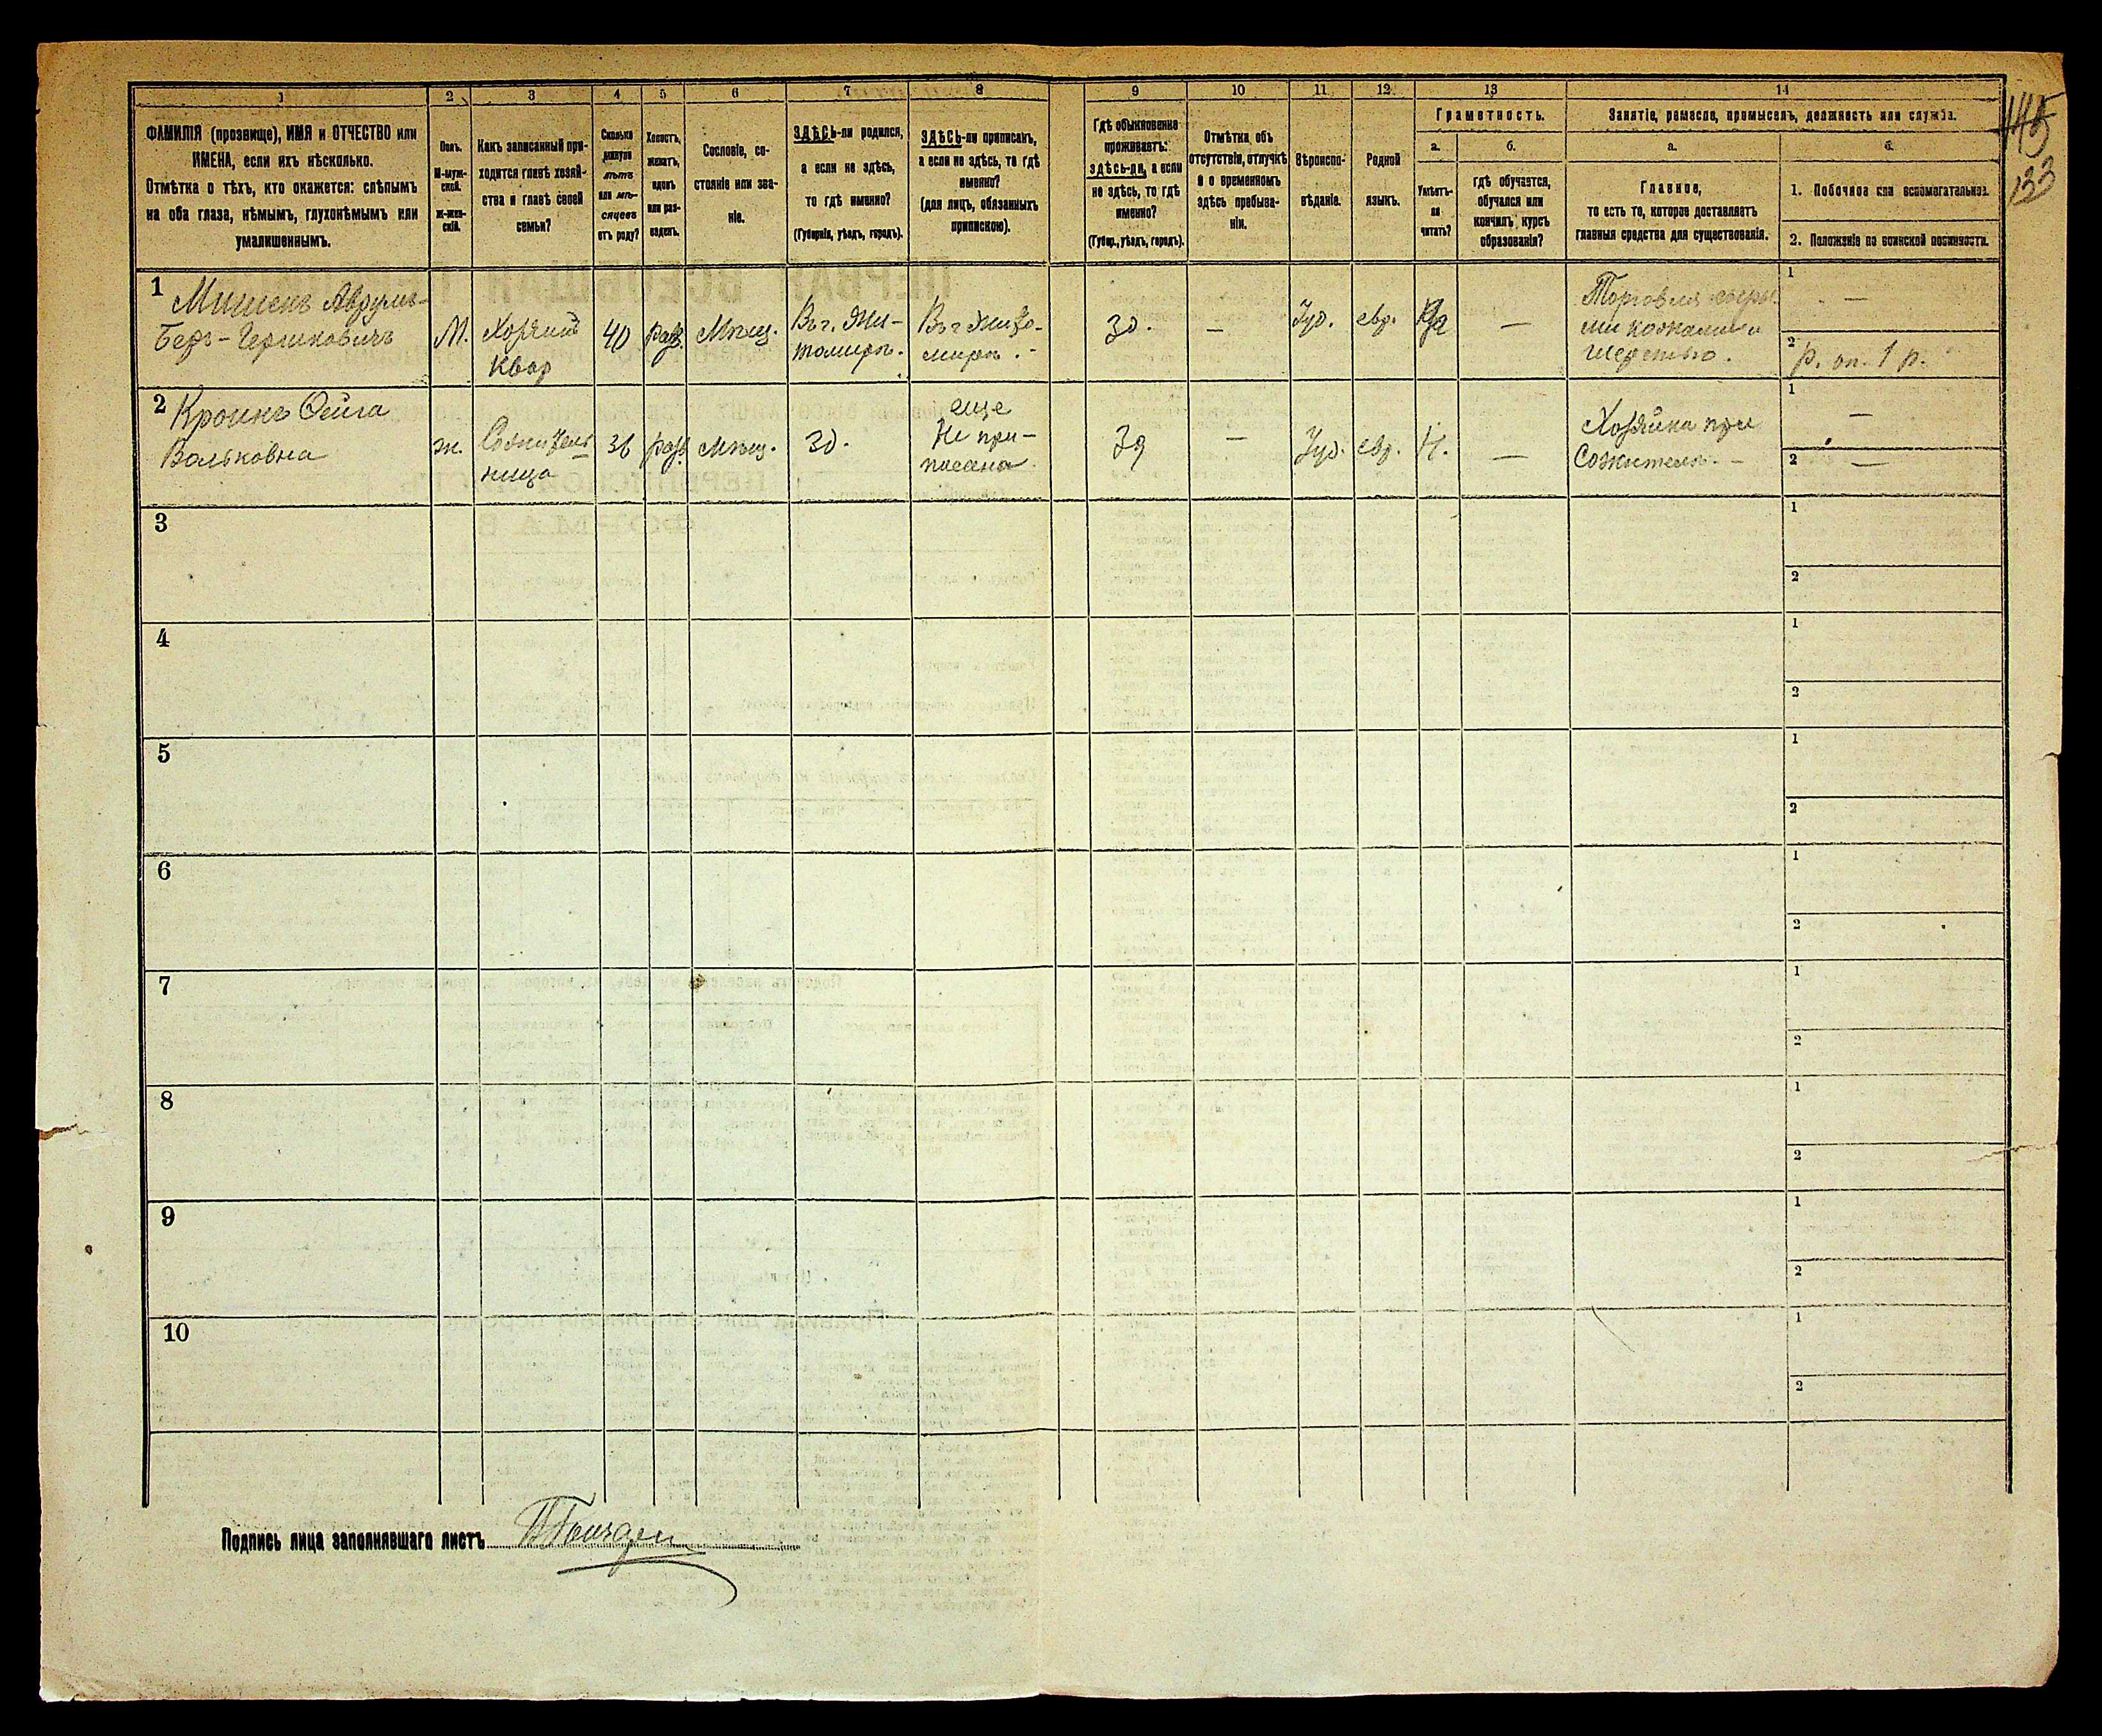 1
2
3
4
5
6
7
8
9
10
11
12
13
14
145
133
ФАМИЛІЯ (прозвище), ИМЯ и ОТЧЕСТВО или
ИМЕНА, если ихъ нѣсколько.
Отмѣтка о тѣхъ, кто окажется: слѣпымъ
на оба глаза, нѣмымъ, глухонѣмымъ или
умалишеннымъ.
Полъ.
М-муж-
ской.
ж-жен-
скій.
Какъ записанный при-
ходится главѣ хозяй-
ства и главѣ своей
семьи?
Сколько
минуло
лѣтъ
или мѣ-
сяцевъ
отъ роду?
Холостъ,
женатъ,
вдовъ
или раз-
веденъ.
Сословіе, со-
стояніе или зва-
ніе.
ЗДѢСЬ-ли родился,
а если не здѣсь,
то гдѣ именно?
(Губернія, уѣздъ, городъ).
ЗДѢСЬ-ли приписанъ,
а если не здѣсь, то гдѣ
именно?
(для лицъ, обязанныхъ
припискою).
Гдѣ обыкновенно
проживаетъ:
здѣсь-ли, а если
не здѣсь, то гдѣ
именно?
(Губер., уѣздъ, городъ).
Отмѣтка объ
отсутствіи, отлучкѣ
и о временномъ
здѣсь пребыва-
ніи.
Вѣроиспо-
вѣданіе.
Родной
языкъ.
Грамотность.
а.
б.
Умѣетъ-
ли
читать?
гдѣ обучается,
обучался или
кончилъ курсъ
образованія?
Занятіе, ремесло, промыселъ, должность или служба.
а.
б.
Главное,
то есть то, которое доставляетъ
главныя средства для существованія.
1. Побочное или вспомогательное.
2. Положеніе по воинской повинности.
1
Мишенъ Аврумъ-
Беръ-Гершковичъ
М.
Хозяинъ
квар
40
разв.
Мѣщ.
Въ г. Жи-
томирѣ.
Въ г Жито-
мирѣ.
Зд.
—
Іуд.
евр.
—
Торговля сыры
ми кожами и
шерстью.
1 —
2 р. оп. 1 р.
2
Кроинъ Фейга
Вольковна
ж.
Сожитель
ница
36
разв
мѣщ.
Зд.
еще
Не при-
писана
Зд
—
Іуд.
евр.
Н.
—
Хозяйка при
Сожителѣ. —
1 —
2 —
3
1
2
4
1
2
5
1
2
6
1
2
7
1
2
8
1
2
9
1
2
10
1
2
Подпись лица заполнявшаго листъ